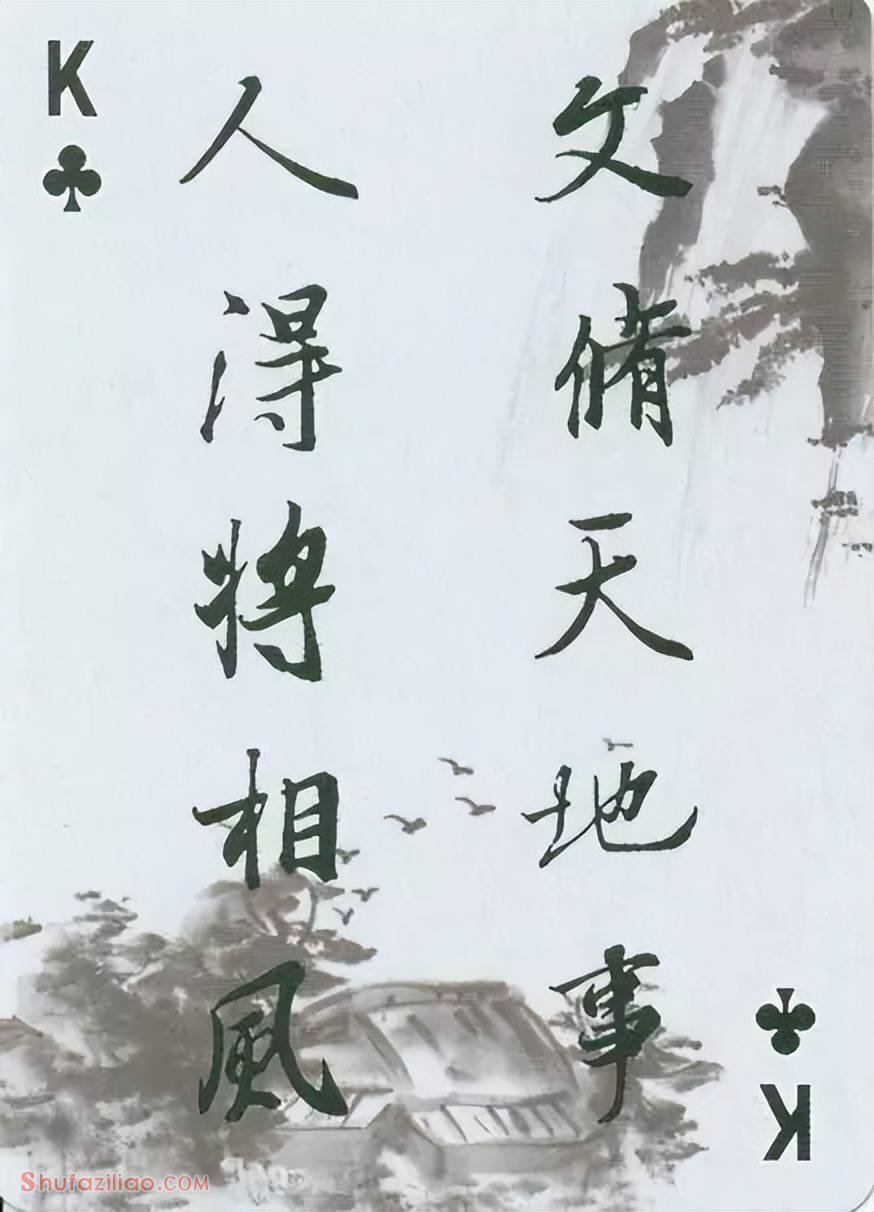 K
文脩天地事
人得將相風
K
Shufaziliao.com